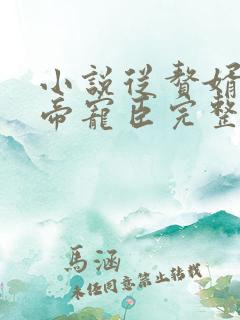 小說從贅婿
帝寵臣完整
馬涵
未經同意禁止轉載